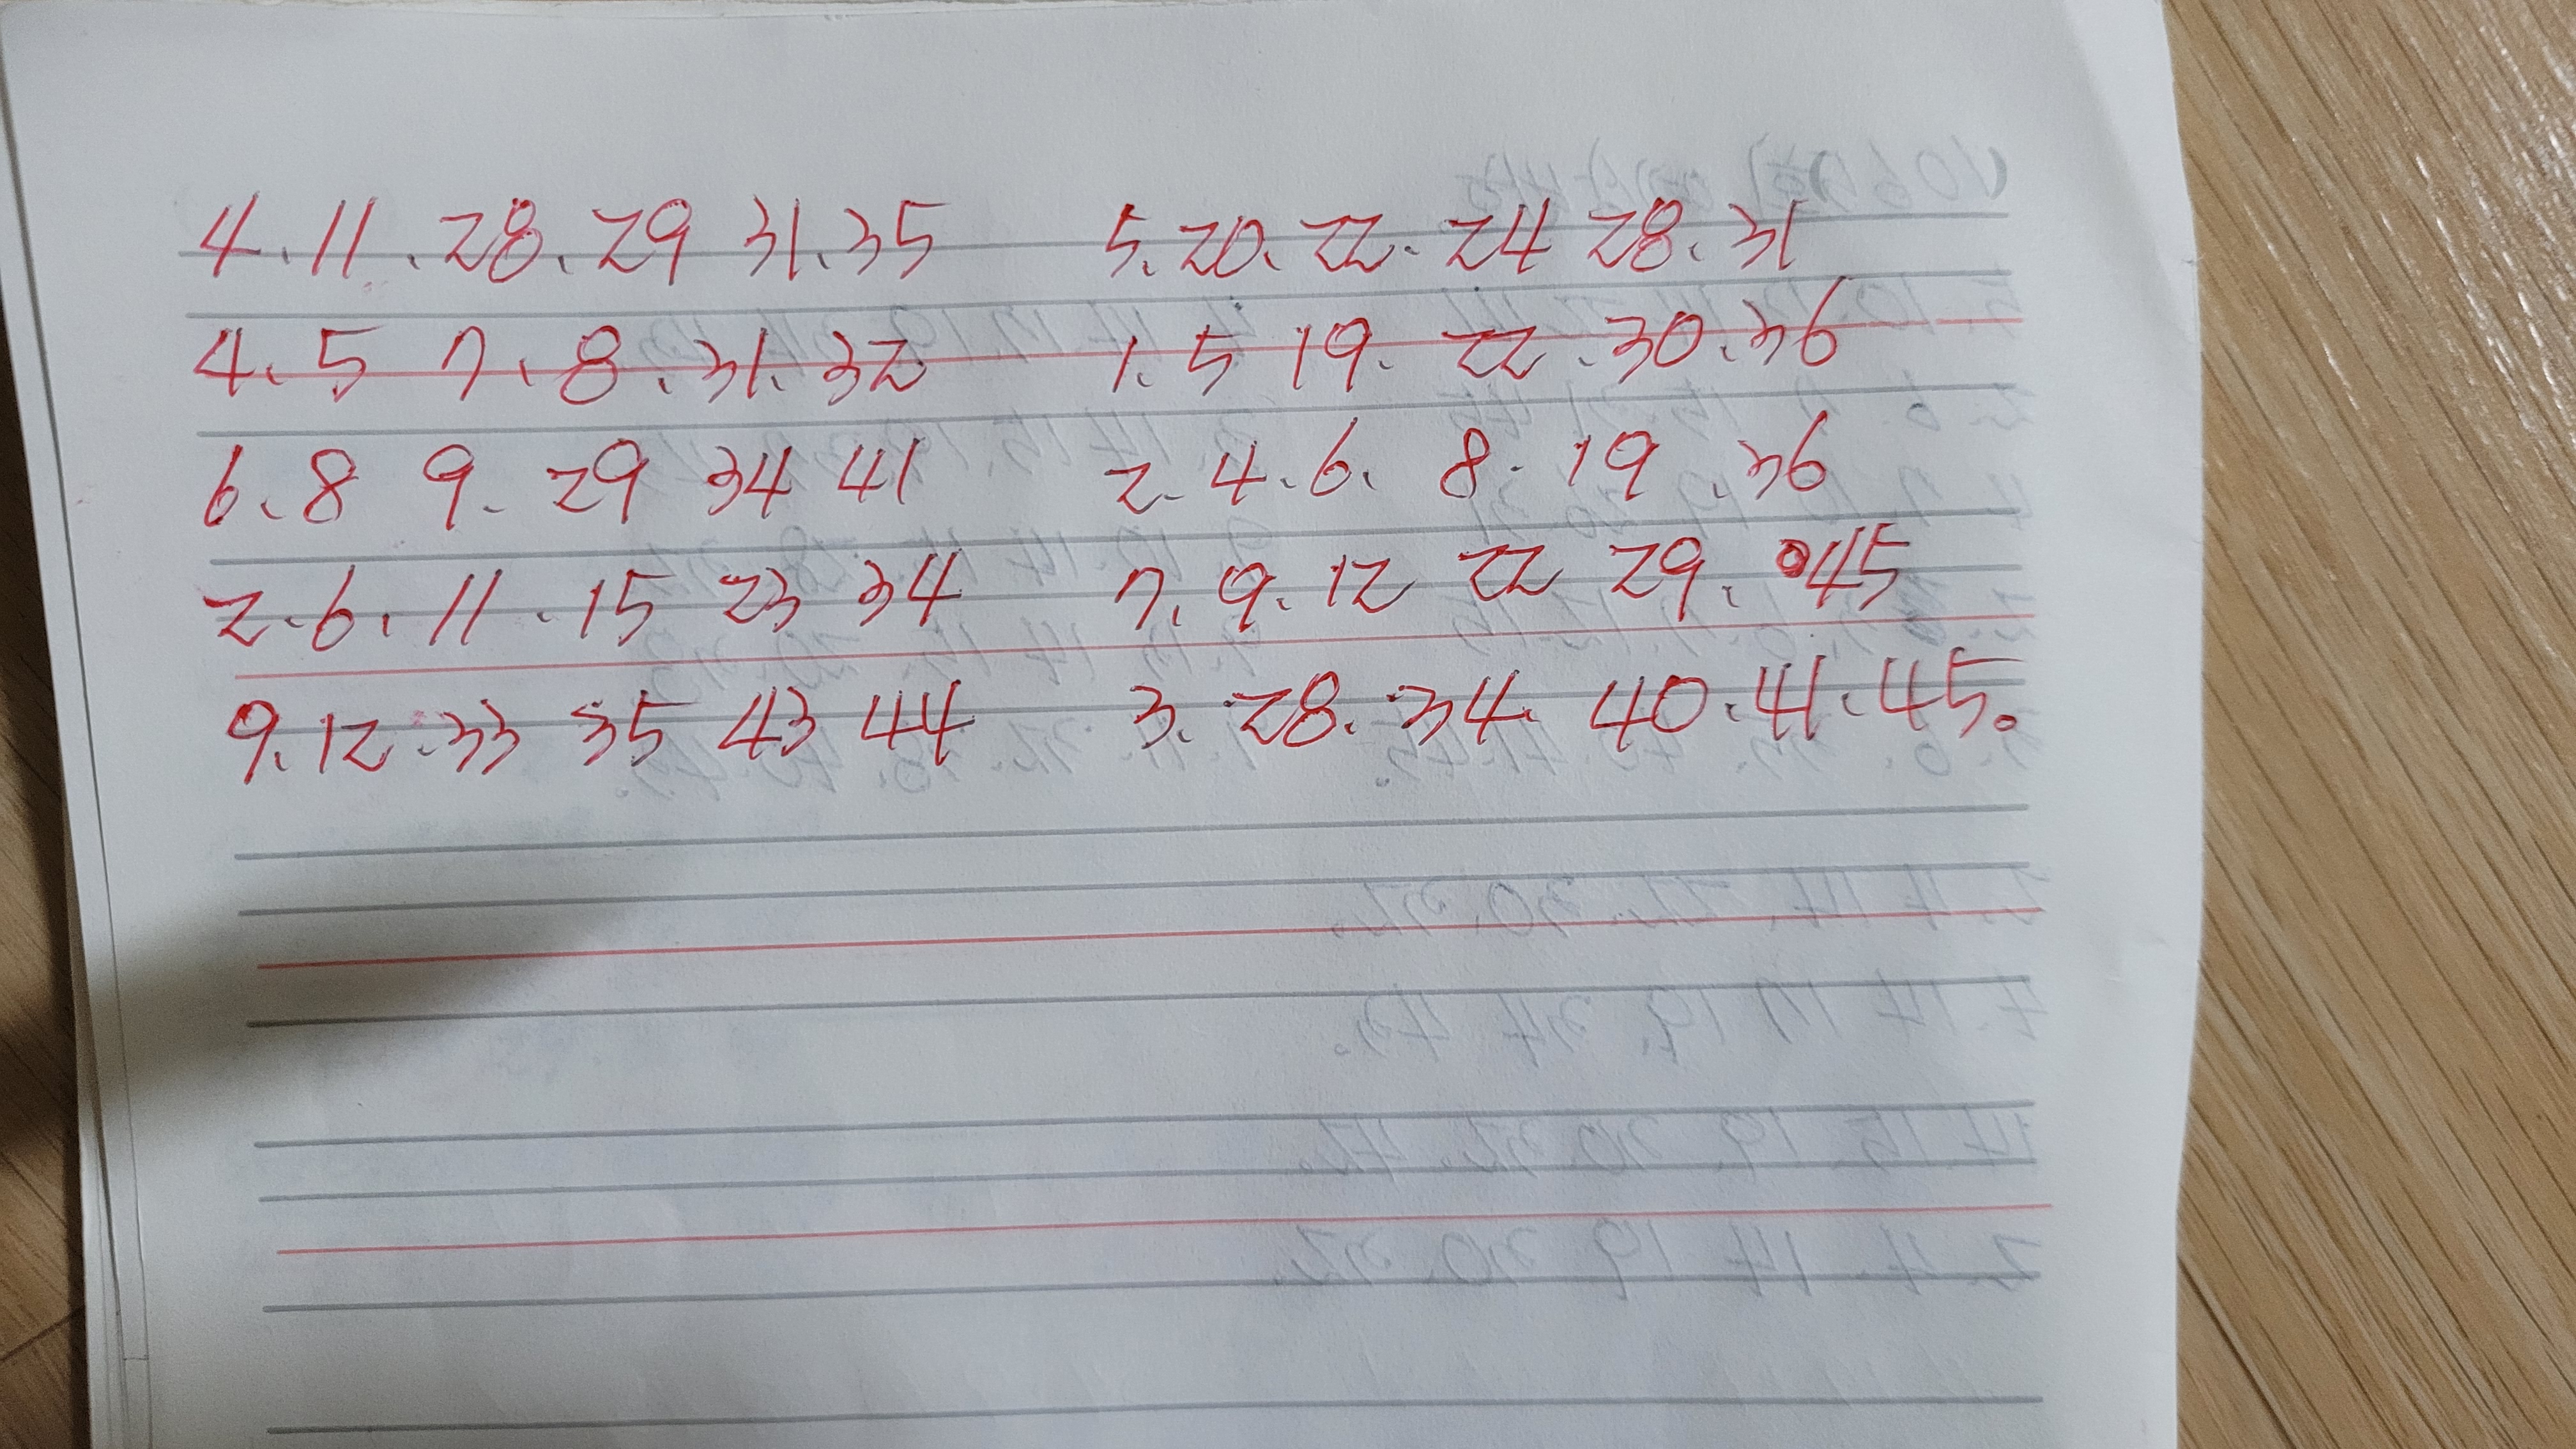 4.11.28.29 31.35 5.20.22.24 28.31
4.5 7.8.31.32 1.5 19.22.30.36
6.8 9.29 34 41 2.4.6.8.19.36
2.6.11.15 23 34 7.9.12 22 29.45
9.12.33 35 43 44 3.28.34.40.41.45.